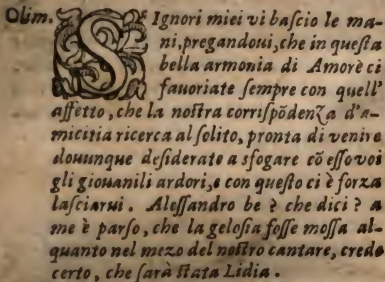 Olim. SIgnori miei vi baſcio le ma-
ni, pregandoui, che in queſta
bella armonia di Amorè ci
fauoriate ſempre con quell'
affetto, che la noſtra corriſpõdenza d'a-
micitia ricerca al ſolito, pronta di venire
douunque deſiderate a sfogare cõ eſſo voi
gli giouanili ardori, e con queſto ci è forza
laſciarui. Aleſſandro be ? che dici ? a
me è parſo, che la geloſia foſſe moſſa al-
quanto nel mezo del noſtro cantare, credo
certo, che ſarà ſtata Lidia.